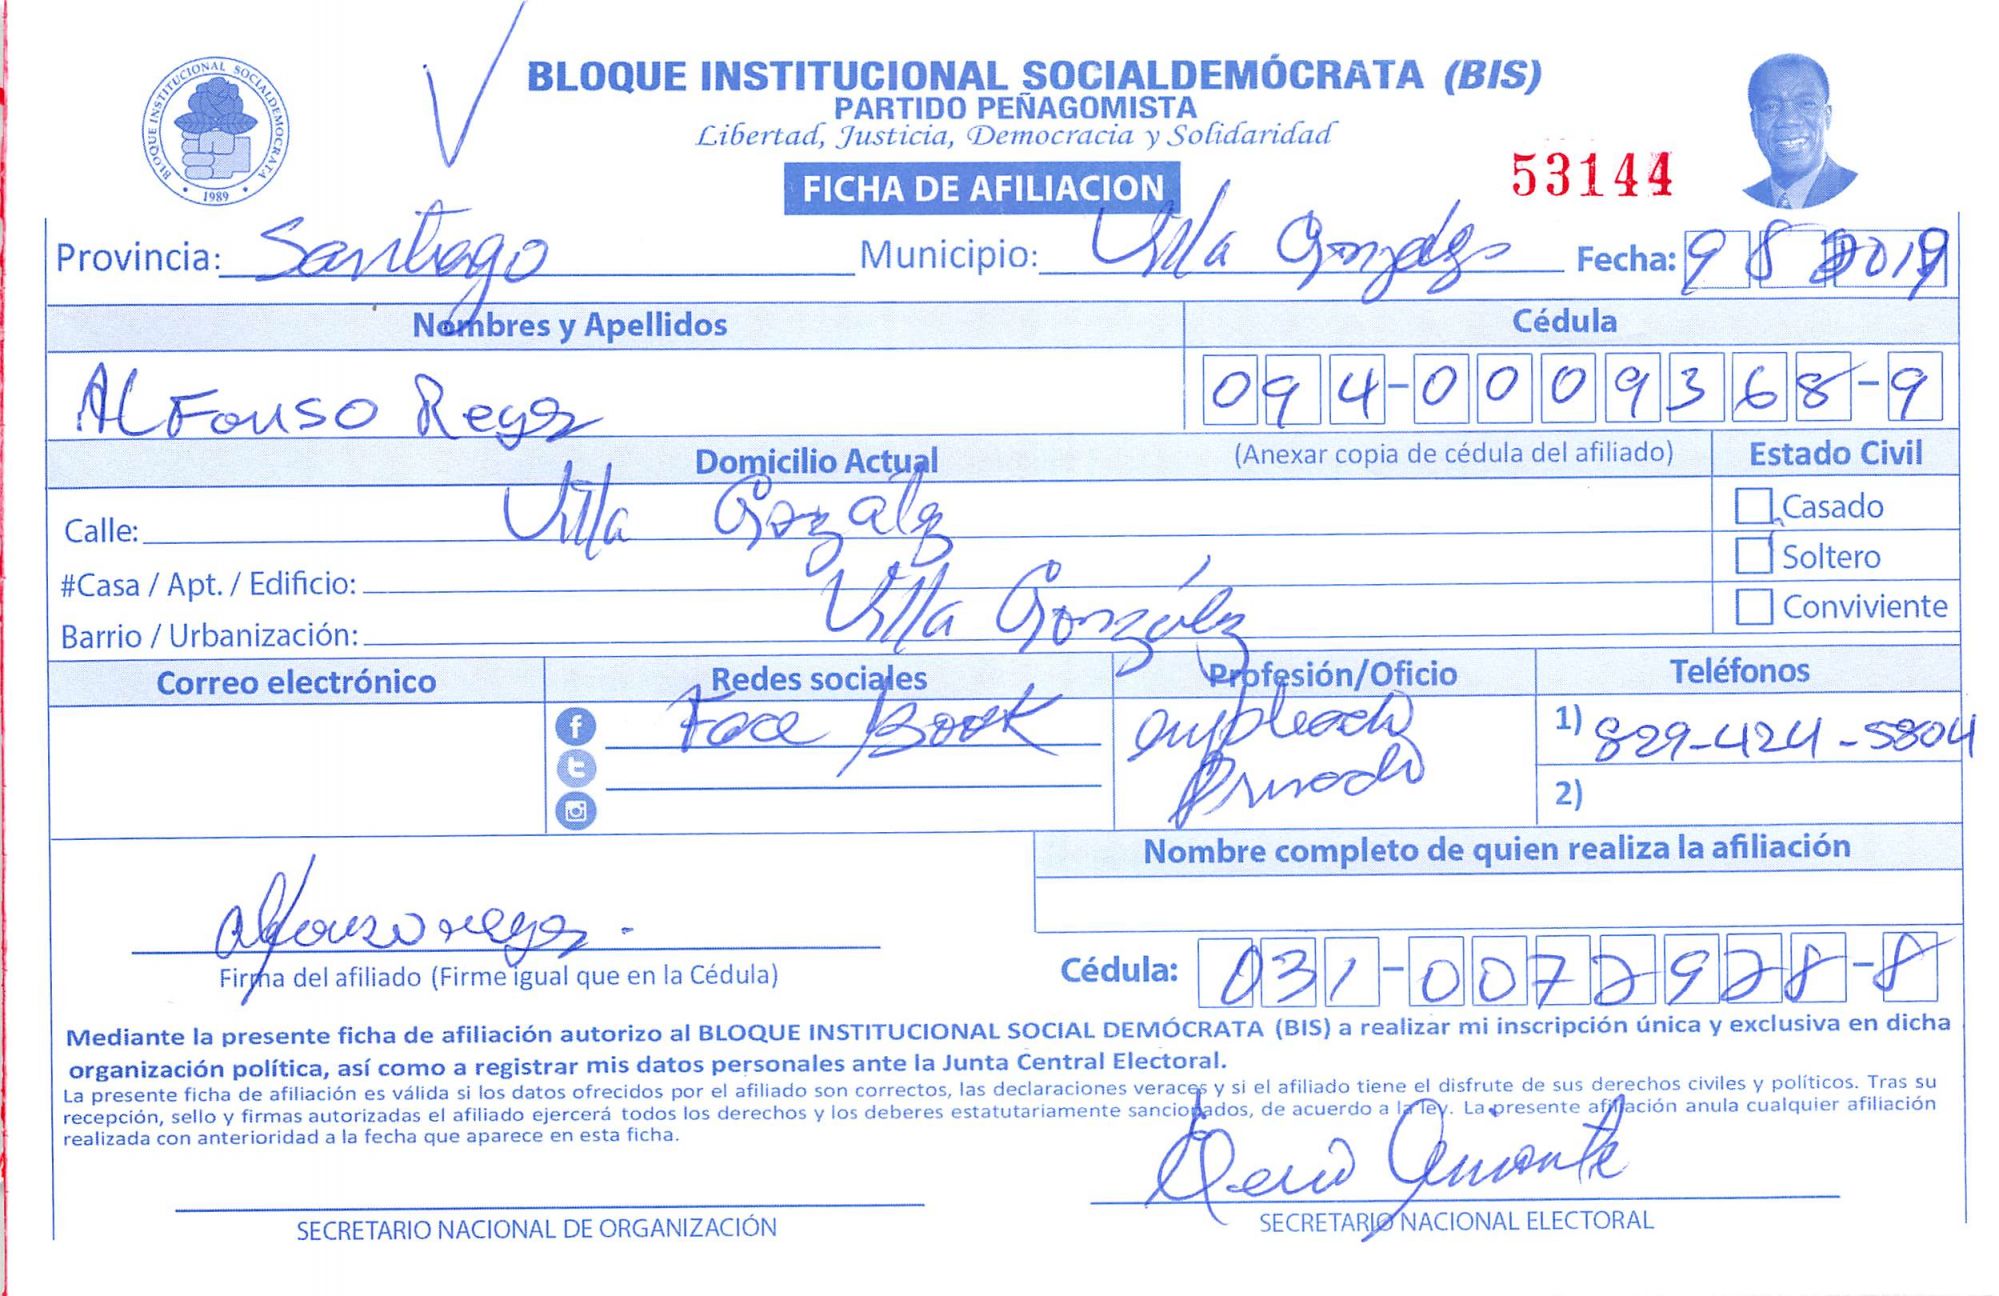 BLOQUE INSTITUCIONAL SOCIALDEMÓCRATA
1989
BLOQUE INSTITUCIONAL SOCIALDEMÓCRATA (BIS)
PARTIDO PEÑAGOMISTA
Libertad, Justicia, Democracia y Solidaridad
FICHA DE AFILIACION
53144
Provincia: Santiago Municipio: Villa González Fecha: 9 8 2019
Nombres y Apellidos Cédula
ALFONSO Reyes 094-0009368-9
Domicilio Actual (Anexar copia de cédula del afiliado) Estado Civil
Calle: Villa Gozález Casado
#Casa / Apt. / Edificio: Soltero
Barrio / Urbanización: Villa González Conviviente
Correo electrónico Redes sociales Profesión/Oficio Teléfonos
Face Book empleado 1) 829-424-5804
Privado 2)
Nombre completo de quien realiza la afiliación
alfonso reyes.
Firma del afiliado (Firme igual que en la Cédula) Cédula: 031-0072928-8
Mediante la presente ficha de afiliación autorizo al BLOQUE INSTITUCIONAL SOCIAL DEMÓCRATA (BIS) a realizar mi inscripción única y exclusiva en dicha
organización política, así como a registrar mis datos personales ante la Junta Central Electoral.
La presente ficha de afiliación es válida si los datos ofrecidos por el afiliado son correctos, las declaraciones veraces y si el afiliado tiene el disfrute de sus derechos civiles y políticos. Tras su
recepción, sello y firmas autorizadas el afiliado ejercerá todos los derechos y los deberes estatutariamente sancionados, de acuerdo a la ley. La presente afiliación anula cualquier afiliación
realizada con anterioridad a la fecha que aparece en esta ficha.
SECRETARIO NACIONAL DE ORGANIZACIÓN SECRETARIO NACIONAL ELECTORAL